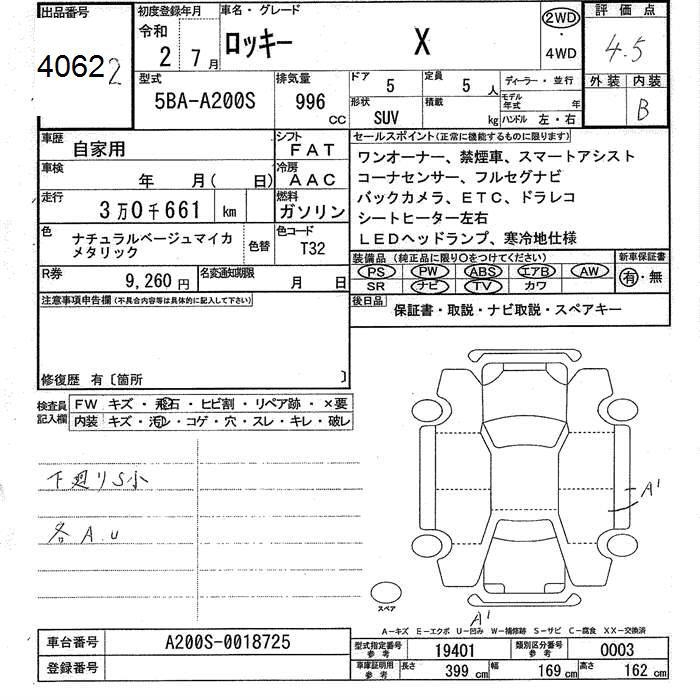 出品番号
40622
初度登録年月
令和
2 7月
車名・グレード
ロッキー X
2WD
・
4WD
評価点
4.5
外装 内装
B
型式
5BA-A200S
排気量
996 CC
ドア 5
定員 5 人
形状 SUV
積載 kg
ディーラー・並行
モデル年式 年
ハンドル 左・右
車歴 自家用
シフト FAT
車検 年 月( 日)
冷房 AAC
走行 3万0千661 km
燃料 ガソリン
色 ナチュラルベージュマイカ
メタリック
色替
色コード T32
R券 9,260円
名変通知期限 月 日
セールスポイント(正常に機能するものに限ります)
ワンオーナー、禁煙車、スマートアシスト
コーナセンサー、フルセグナビ
バックカメラ、ETC、ドラレコ
シートヒーター左右
LEDヘッドランプ、寒冷地仕様
装備品(純正品に限り○をつけてください)
PS PW ABS エアB AW
SR ナビ TV カワ
新車保証書
有・無
後日品 保証書・取説・ナビ取説・スペアキー
注意事項申告欄(不具合内容等は具体的に記入して下さい)
修復歴 有〔箇所 〕
検査員
記入欄
FW キズ・飛石・ヒビ割・リペア跡・×要
内装 キズ・汚レ・コゲ・穴・スレ・キレ・破レ
下廻りS小
各A.U
A1
A1
スペア
A-キズ E-エクボ U-凹み W-補修跡 S-サビ C-腐食 XX-交換済
車台番号 A200S-0018725
登録番号
型式指定番号
参考
19401
類別区分番号
参考
0003
車庫証明用
参考
長さ 399 cm 幅 169 cm 高さ 162 cm